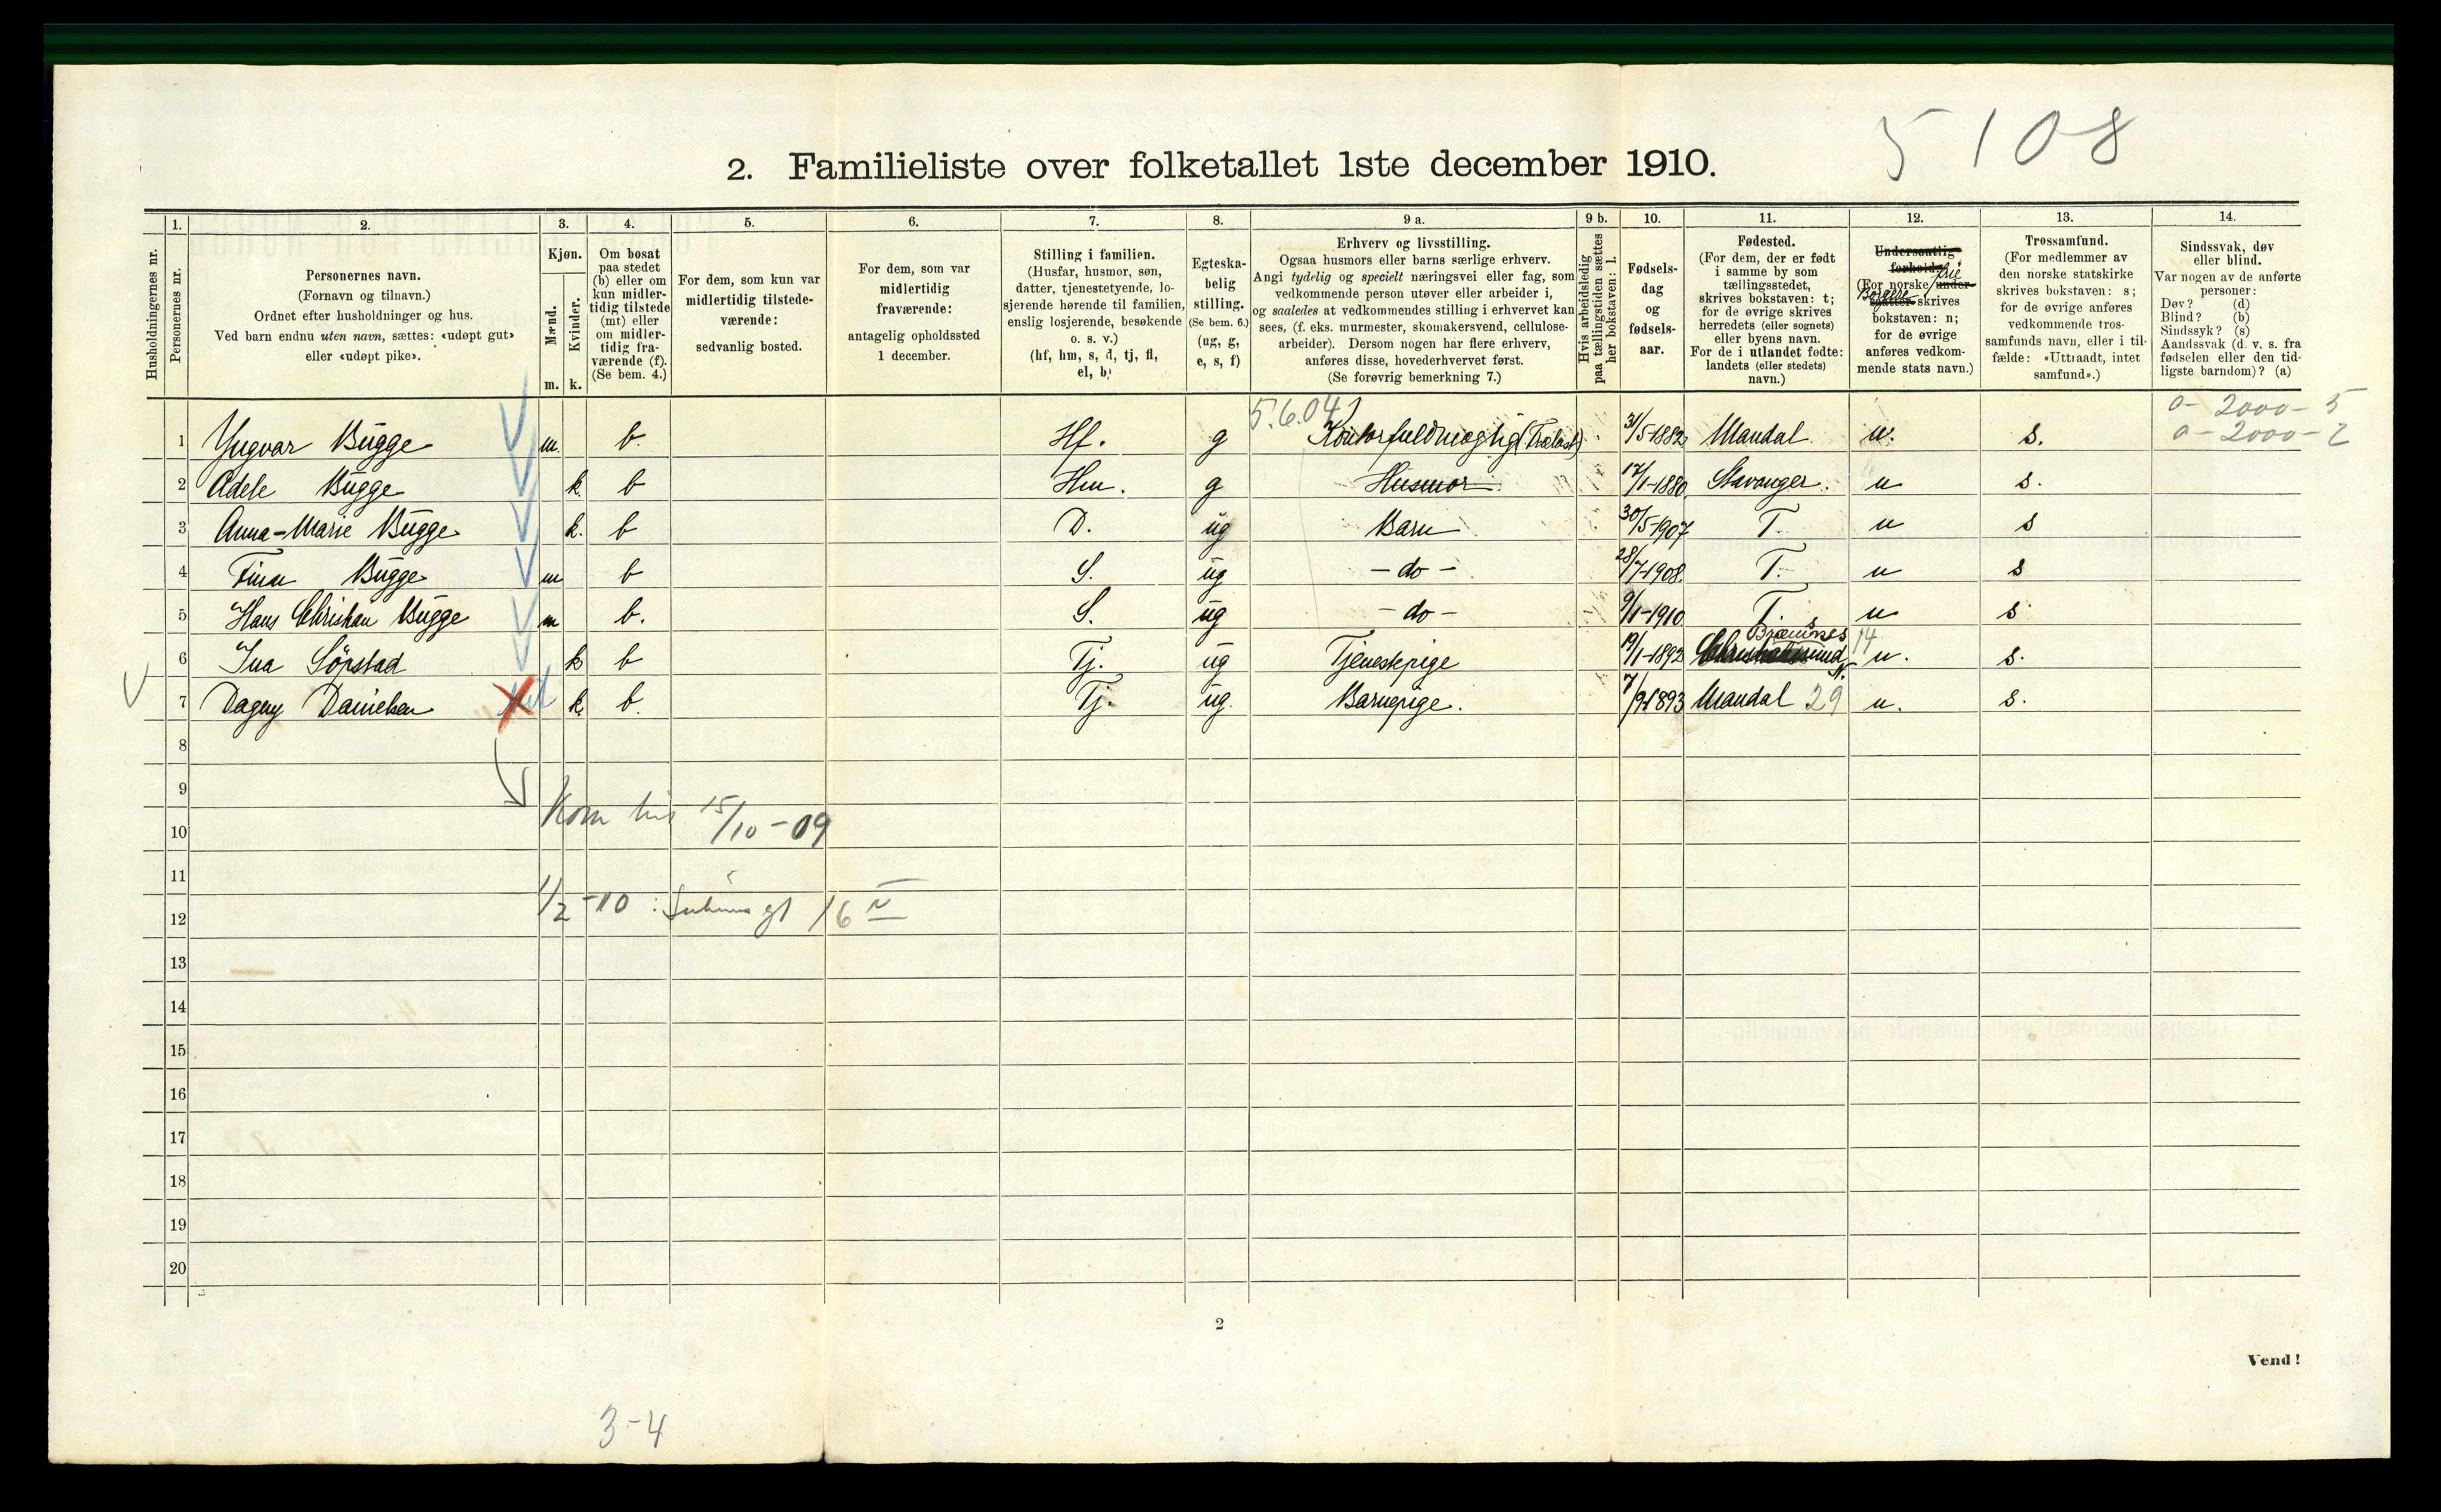 5108
2. Familieliste over folketallet 1ste december 1910.
Husholdningernes nr.
1. Personernes nr.
2. Personernes navn.
(Fornavn og tilnavn.)
Ordnet efter husholdninger og hus.
Ved barn endnu uten navn, sættes: «udøpt gut»
eller «udøpt pike».
3. Kjøn.
Mænd. m.
Kvinder. k.
4. Om bosat
paa stedet
(b) eller om
kun midler-
tidig tilstede
(mt) eller
om midler-
tidig fra-
værende (f).
(Se bem. 4.)
5. For dem, som kun var
midlertidig tilstede-
værende:
sedvanlig bosted.
6. For dem, som var
midlertidig
fraværende:
antagelig opholdssted
1 december.
7. Stilling i familien.
(Husfar, husmor, søn,
datter, tjenestetyende, lo-
sjerende hørende til familien,
enslig losjerende, besøkende
o. s. v.)
(hf, hm, s, d, tj, fl,
el, b)
8. Egteska-
belig
stilling.
(Se bem. 6.)
(ug, g,
e, s, f)
9 a. Erhverv og livsstilling.
Ogsaa husmors eller barns særlige erhverv.
Angi tydelig og specielt næringsvei eller fag, som
vedkommende person utøver eller arbeider i,
og saaledes at vedkommendes stilling i erhvervet kan
sees, (f. eks. murmester, skomakersvend, cellulose-
arbeider). Dersom nogen har flere erhverv,
anføres disse, hovederhvervet først.
(Se forøvrig bemerkning 7.)
9 b. Hvis arbeidsledig
paa tællingstiden sættes
her bokstaven: l.
10. Fødsels-
dag
og
fødsels-
aar.
11. Fødested.
(For dem, der er født
i samme by som
tællingsstedet,
skrives bokstaven: t;
for de øvrige skrives
herredets (eller sognets)
eller byens navn.
For de i utlandet fødte:
landets (eller stedets)
navn.)
12. Undersaatlig
forhold.
(For norske under-
saatter skrives
bokstaven: n;
for de øvrige
anføres vedkom-
mende stats navn.)
13. Trossamfund.
(For medlemmer av
den norske statskirke
skrives bokstaven: s;
for de øvrige anføres
vedkommende tros-
samfunds navn, eller i til-
fælde: «Uttraadt, intet
samfund».)
14. Sindssvak, døv
eller blind.
Var nogen av de anførte
personer:
Døv? (d)
Blind? (b)
Sindssyk? (s)
Aandssvak (d. v. s. fra
fødselen eller den tid-
ligste barndom)? (a)
5.6.04
0 - 2000 - 5
0 - 2000 - 2
1 Yngvar Bugge m. b. Hf. g Kontorfuldmægtig (Trælast) 31/5-1882 Mandal n. s.
2 Adele Bugge k. b Hm. g Husmor 17/1-1880 Stavanger. n s.
3 Anna-Marie Bugge k. b D. ug Barn 30/5-1907 T. n s
4 Finn Bugge m b S. ug - do - 28/7-1908. T. n s
5 Hans Christian Bugge m b. S. ug - do - 9/1-1910. T. n s
6 Ina Sörstad k b Tj. ug Tjenestepige 19/1-1892 Christianssund N. Bremsnes 14 n. s.
7 Dagny Danielsen k. b. Tj. ug. Barnepige. 7/9-1893 Mandal 29 n. s.
8
9
Kom hit 15/10-09
10
11
1/2-10 : 16
12
13
14
15
16
17
18
19
20
2
Vend!
3-4